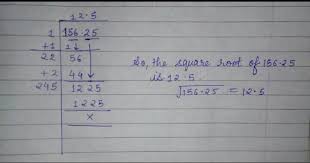 12.5
1 156.25
+1 1
22 56
+2 44
245 1225
1225
x
So, the square root of 156.25
is 12.5
√156.25 = 12.5